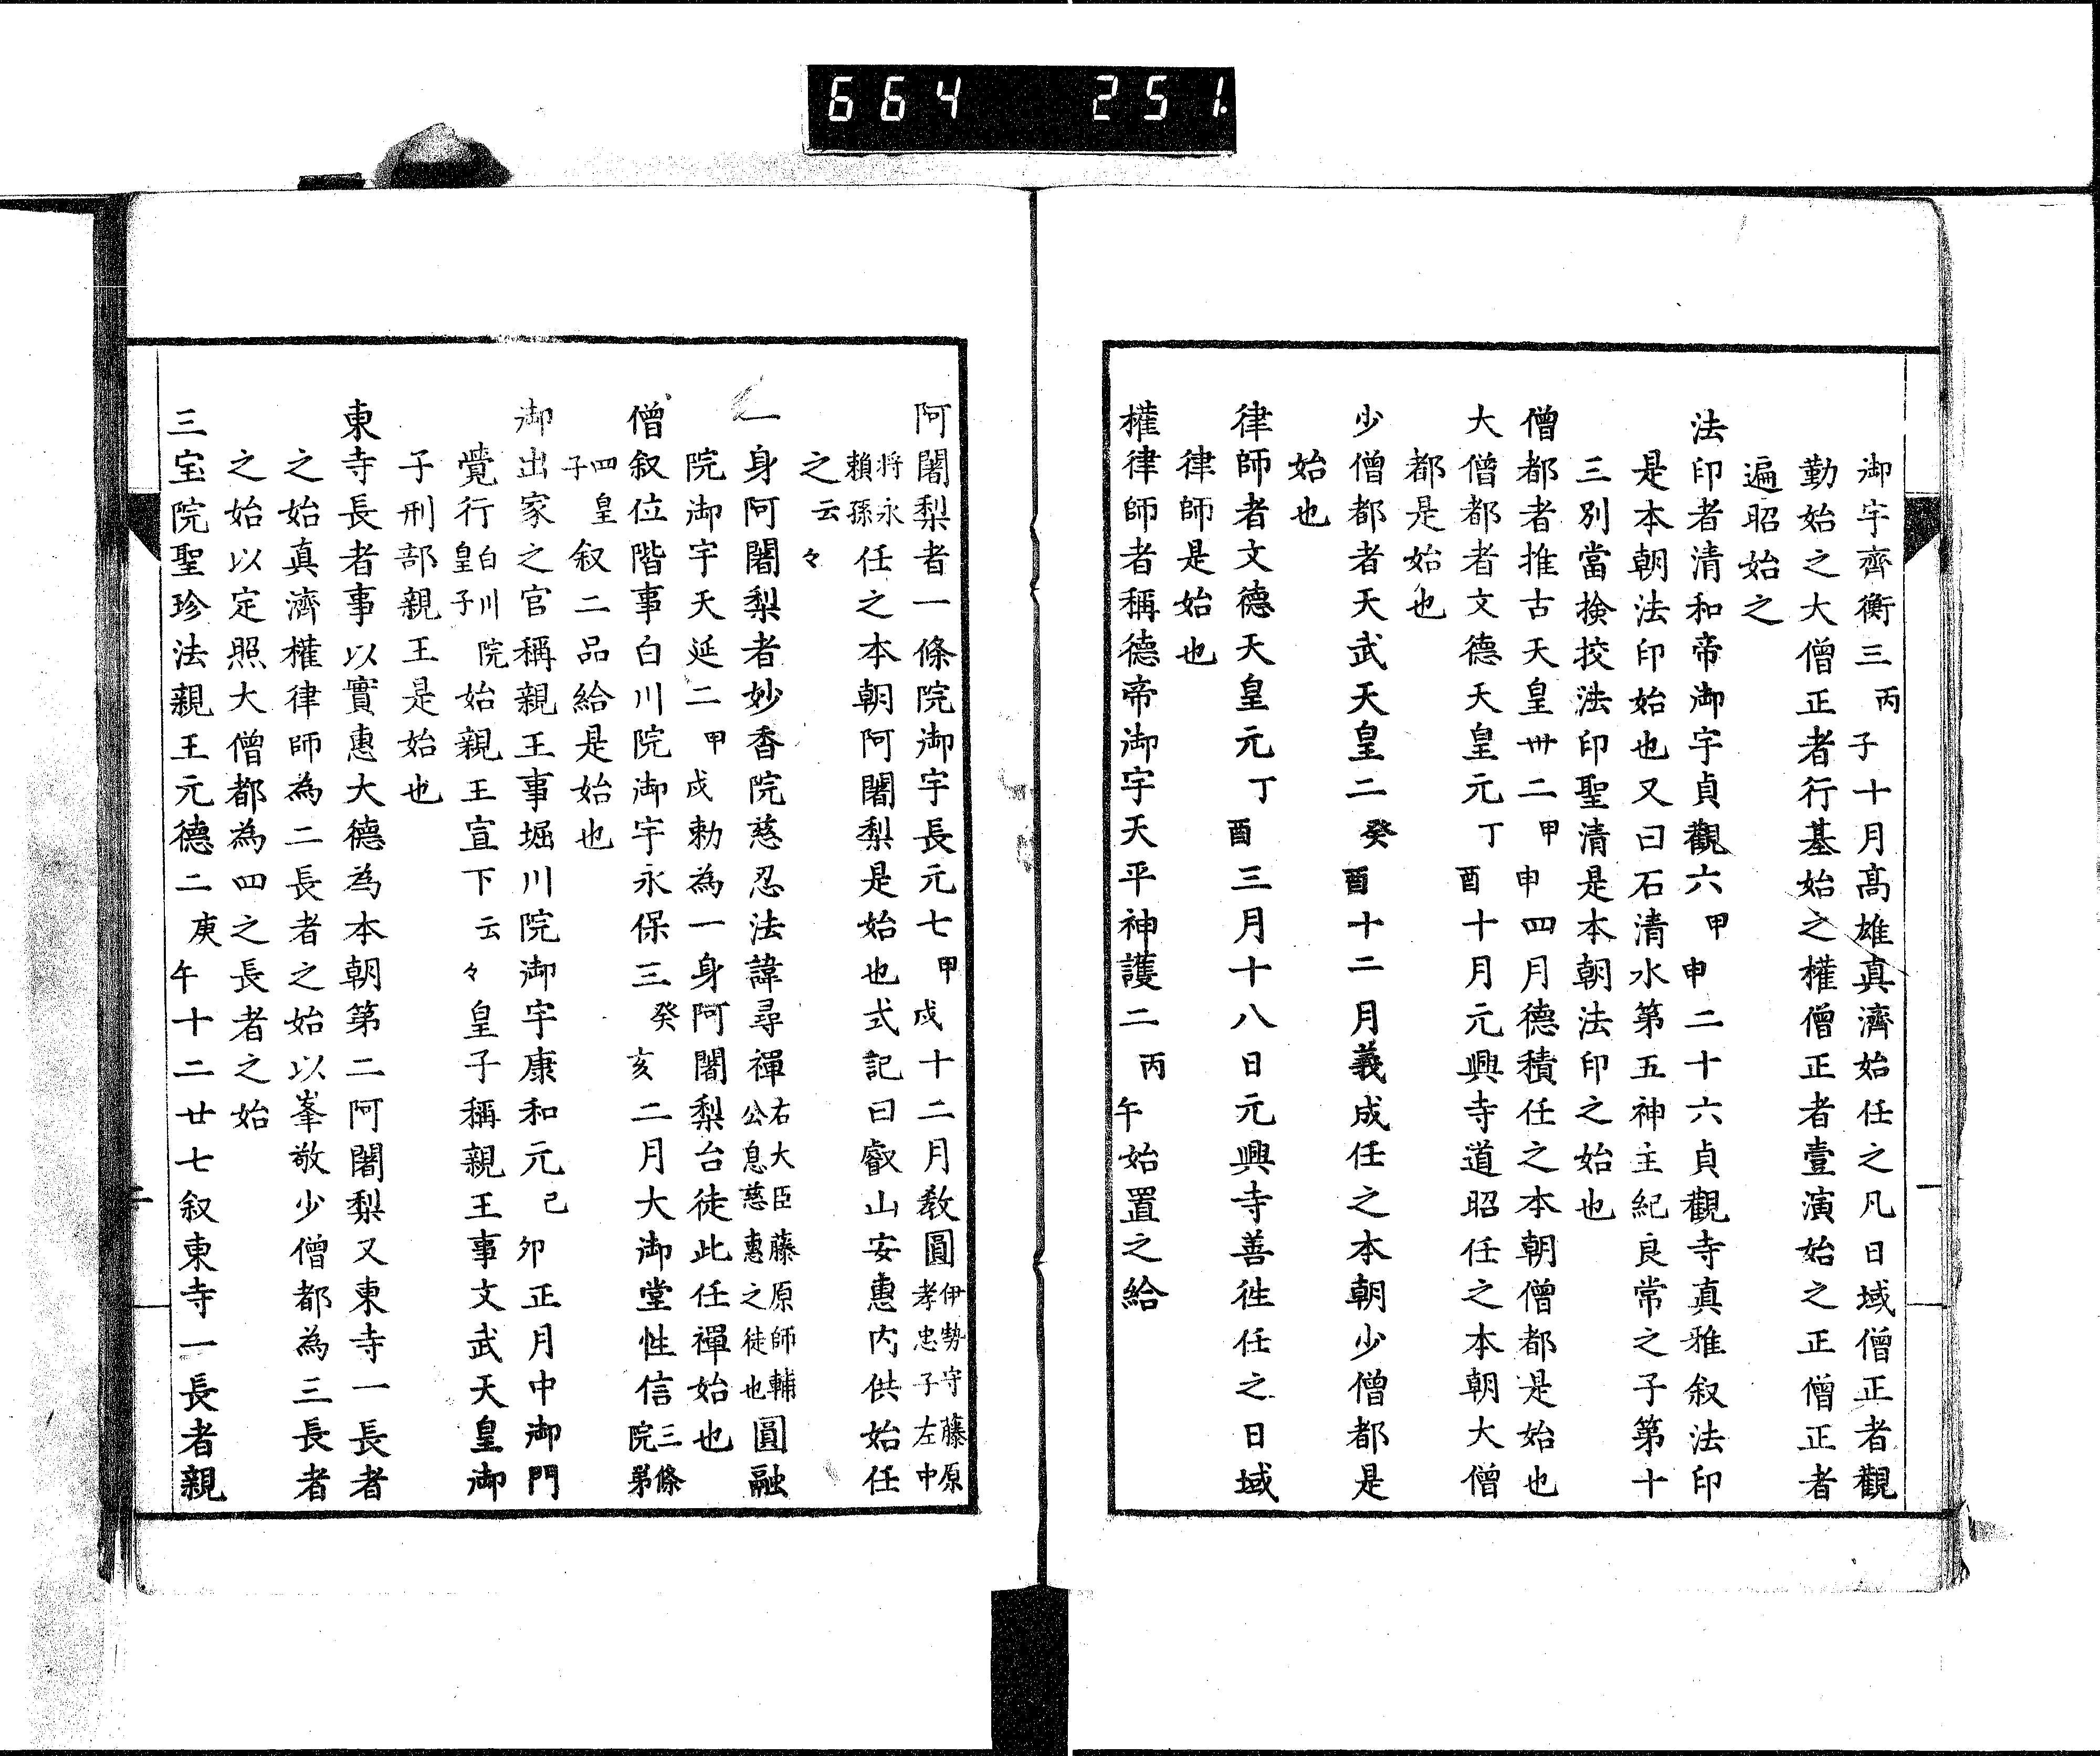 664 251.
御宇齊衡三丙子十月髙雄真濟始任之凡日域僧正者觀
勤始之大僧正者行基始之權僧正者壹演始之正僧正者
遍昭始之
法印者清和帝御宇貞觀六甲申二十六貞觀寺真雅叙法印
是本朝法印始也又曰石清水第五神主紀良常之子第十
三別當撿挍法印聖清是本朝法印之始也
僧都者推古天皇卅二甲申四月德積任之本朝僧都是始也
大僧都者文德天皇元丁酉十月元興寺道昭任之本朝大僧
都是始也
少僧都者天武天皇二癸酉十二月義成任之本朝少僧都是
始也
律師者文德天皇元丁酉三月十八日元興寺善徃任之日域
律師是始也
權律師者稱德帝御宇天平神護二丙午始置之給
阿闍梨者一條院御宇長元七甲戌十二月教圓伊勢守藤原孝忠子左中
将永頼孫任之本朝阿闍梨是始也式記曰叡山安惠内供始任
之云々
一身阿闍梨者妙香院慈忍法諱尋禪右大臣藤原師輔公息慈惠之徒也圓融
院御宇天延二甲戌勅為一身阿闍梨台徒此任禪始也
僧叙位階事白川院御宇永保三癸亥二月大御堂性信三條院第
四皇子叙二品給是始也
御出家之官稱親王事堀川院御宇康和元己卯正月中御門
覺行白川院皇子始親王宣下云々皇子稱親王事文武天皇御
子刑部親王是始也
東寺長者事以實惠大德為本朝第二阿闍梨又東寺一長者
之始真濟權律師為二長者之始以峯敬少僧都為三長者
之始以定照大僧都為四之長者之始
三宝院聖珍法親王元德二庚午十二廿七叙東寺一長者親